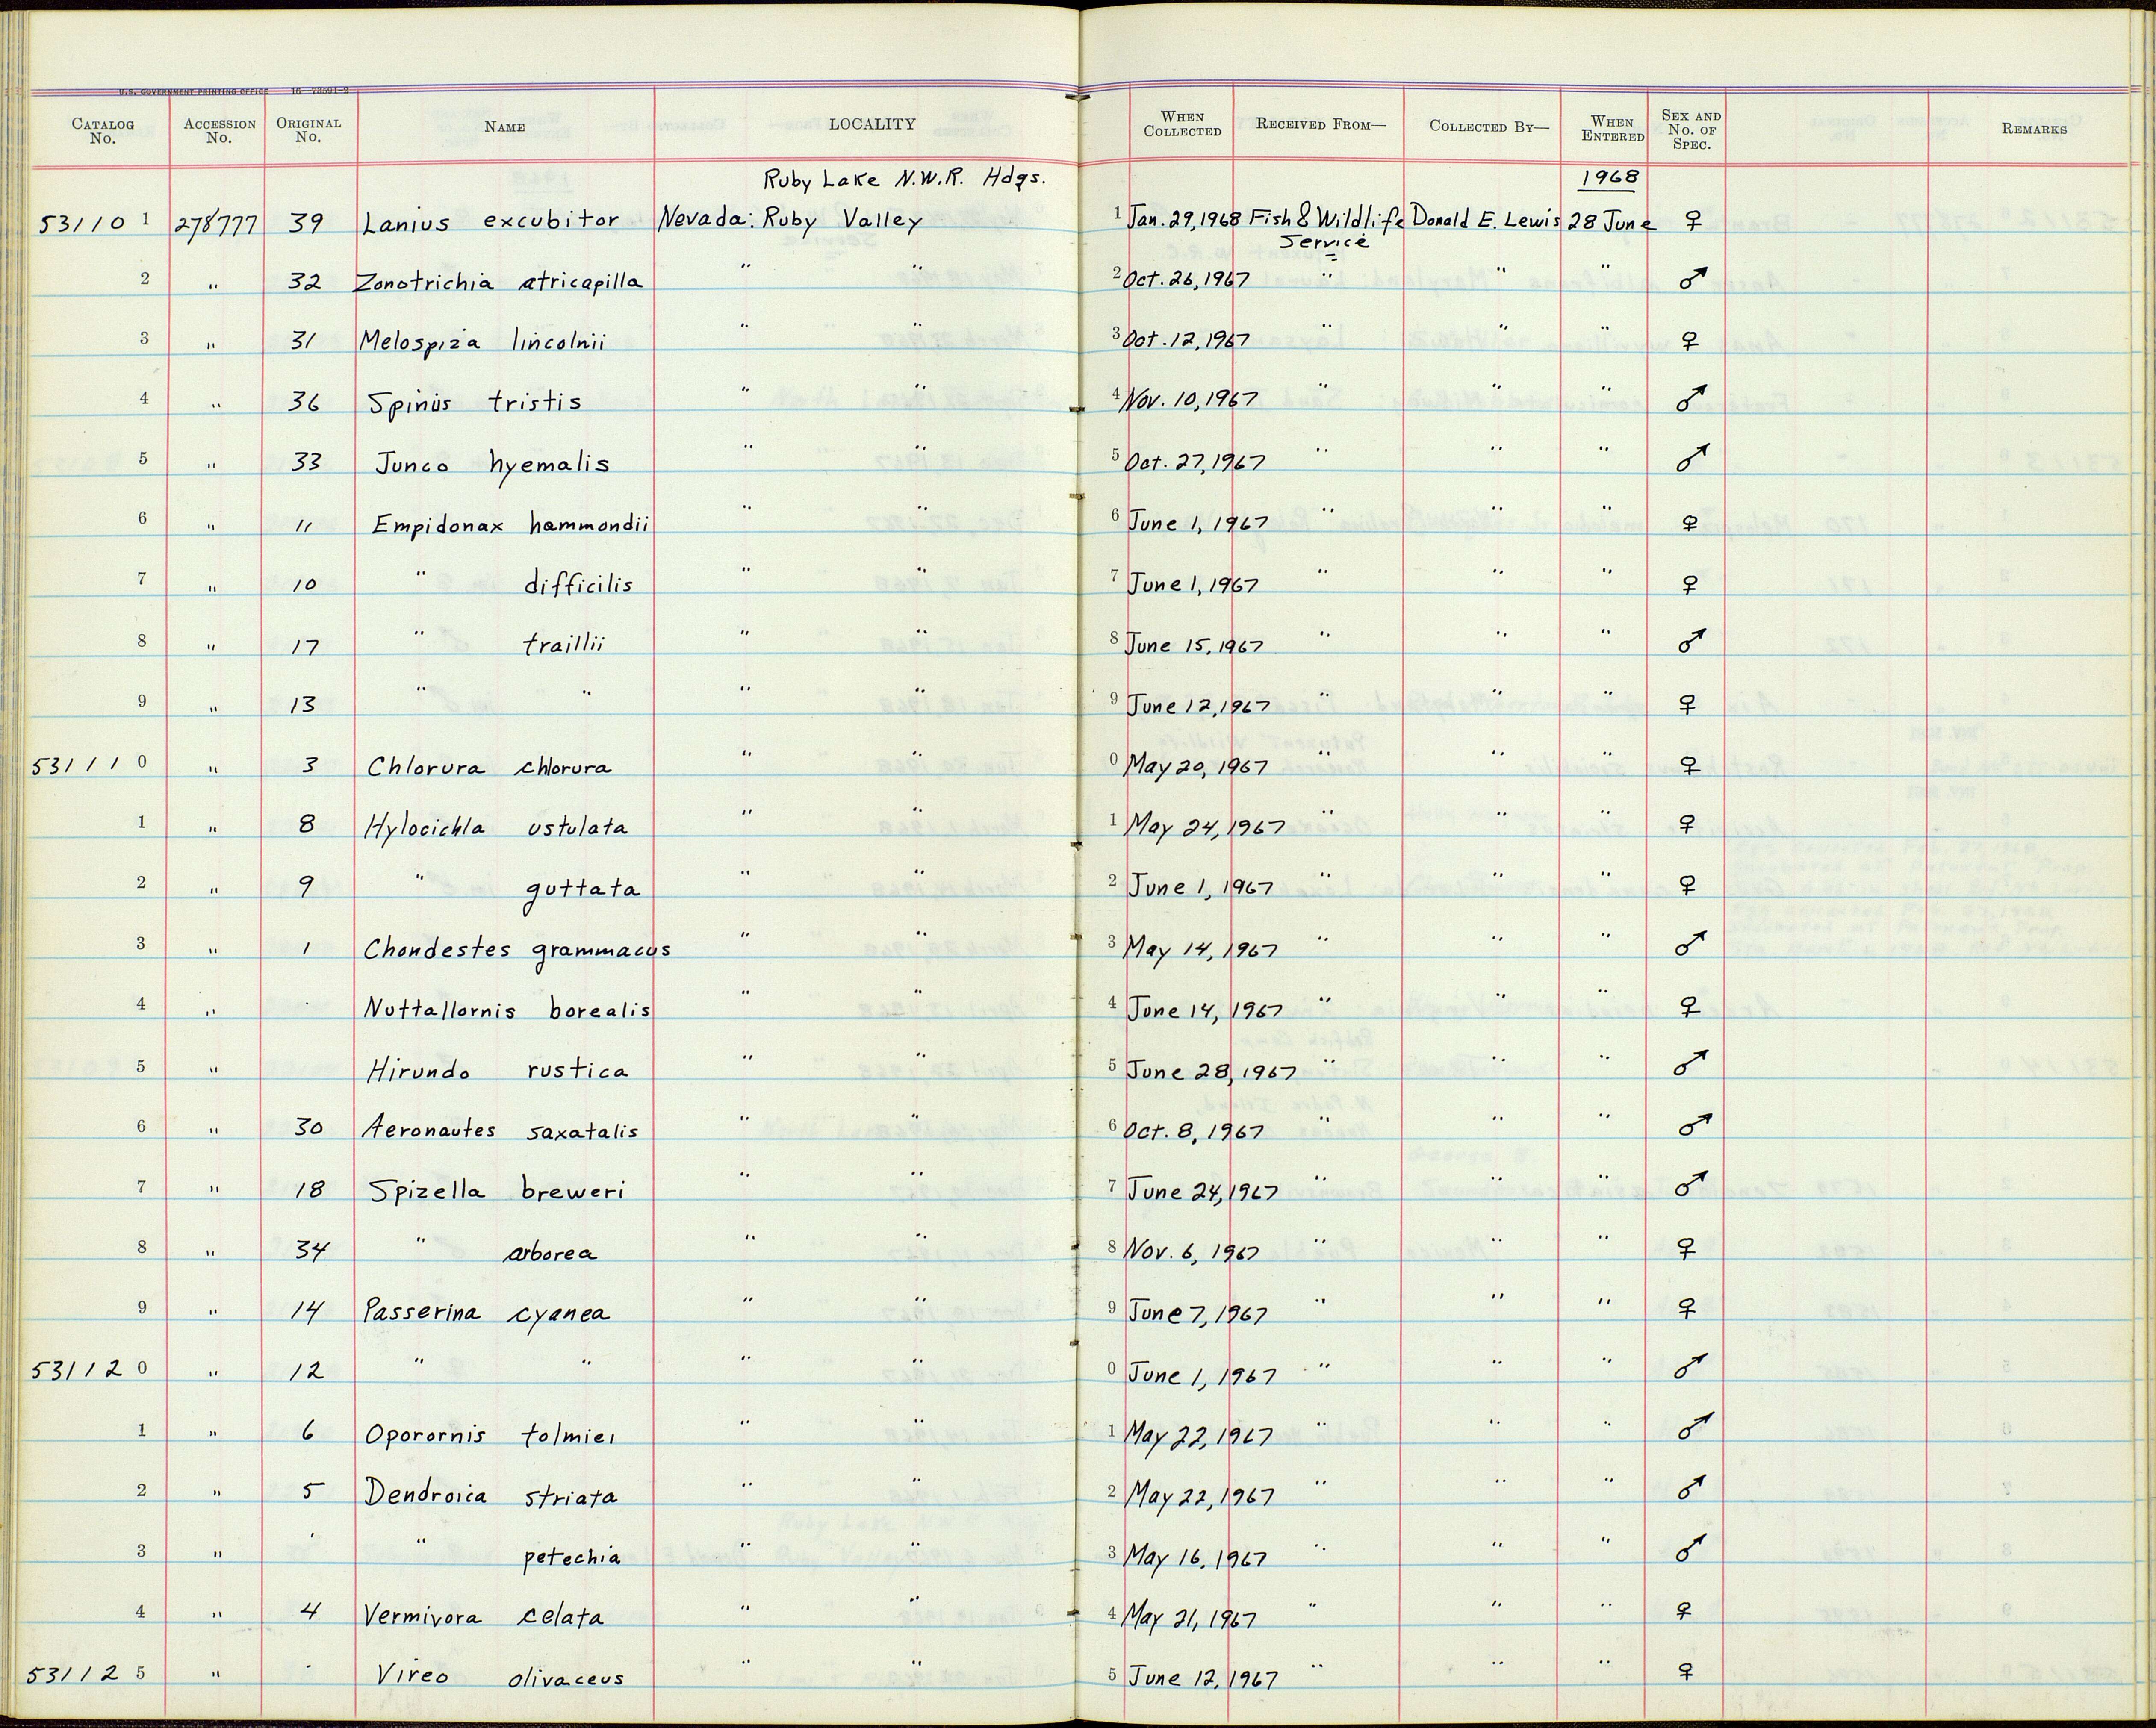 U.S. GOVERNMENT PRINTING OFFICE 16—73591-2
CATALOG No. ACCESSION No. ORIGINAL No. NAME LOCALITY WHEN COLLECTED RECEIVED FROM— COLLECTED BY— WHEN ENTERED SEX AND No. OF SPEC. REMARKS
Ruby Lake N.W.R. Hdqs. 1968
53110 1 278777 39 Lanius excubitor Nevada: Ruby Valley 1 Jan. 29, 1968 Fish & Wildlife Service Donald E. Lewis 28 June ♀
2 " 32 Zonotrichia atricapilla " " 2 Oct. 26, 1967 " " " ♂
3 " 31 Melospiza lincolnii " " 3 Oct. 12, 1967 " " " ♀
4 " 36 Spinus tristis " " 4 Nov. 10, 1967 " " " ♂
5 " 33 Junco hyemalis " " 5 Oct. 27, 1967 " " " ♂
6 " 11 Empidonax hammondii " " 6 June 1, 1967 " " " ♀
7 " 10 " difficilis " " 7 June 1, 1967 " " " ♀
8 " 17 " traillii " " 8 June 15, 1967 " " " ♂
9 " 13 " " " " 9 June 12, 1967 " " " ♀
53111 0 " 3 Chlorura chlorura " " 0 May 20, 1967 " " " ♀
1 " 8 Hylocichla ustulata " " 1 May 24, 1967 " " " ♀
2 " 9 " guttata " " 2 June 1, 1967 " " " ♀
3 " 1 Chondestes grammacus " " 3 May 14, 1967 " " " ♂
4 " Nuttallornis borealis " " 4 June 14, 1967 " " " ♀
5 " Hirundo rustica " " 5 June 28, 1967 " " " ♂
6 " 30 Aeronautes saxatalis " " 6 Oct. 8, 1967 " " " ♂
7 " 18 Spizella breweri " " 7 June 24, 1967 " " " ♂
8 " 34 " arborea " " 8 Nov. 6, 1967 " " " ♀
9 " 14 Passerina cyanea " " 9 June 7, 1967 " " " ♀
53112 0 " 12 " " " " 0 June 1, 1967 " " " ♂
1 " 6 Oporornis tolmiei " " 1 May 22, 1967 " " " ♂
2 " 5 Dendroica striata " " 2 May 22, 1967 " " " ♂
3 " " petechia " " 3 May 16, 1967 " " " ♂
4 " 4 Vermivora celata " " 4 May 21, 1967 " " " ♀
53112 5 " Vireo olivaceus " " 5 June 12, 1967 " " " ♀